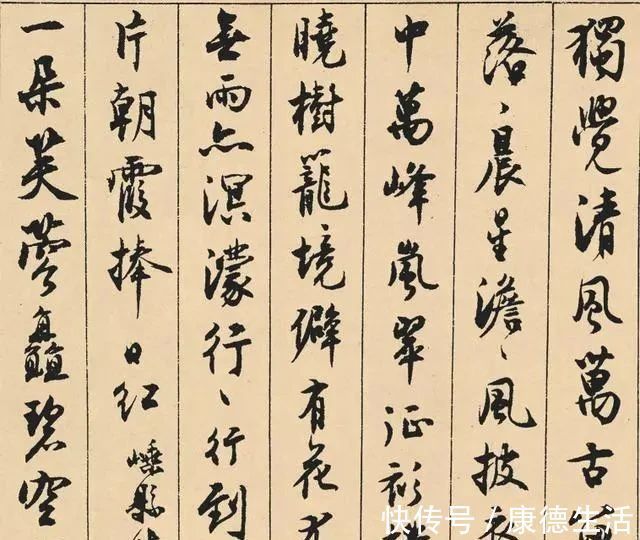 獨覺清風萬古
落〻晨星澹〻風披
中萬峰嵐翠征衫
曉樹籠境僻有花
無雨亦溟濛行〻行到
片朝霞捧日紅 嵊縣
一朵芙蓉矗碧空
快传号 / 康德生活